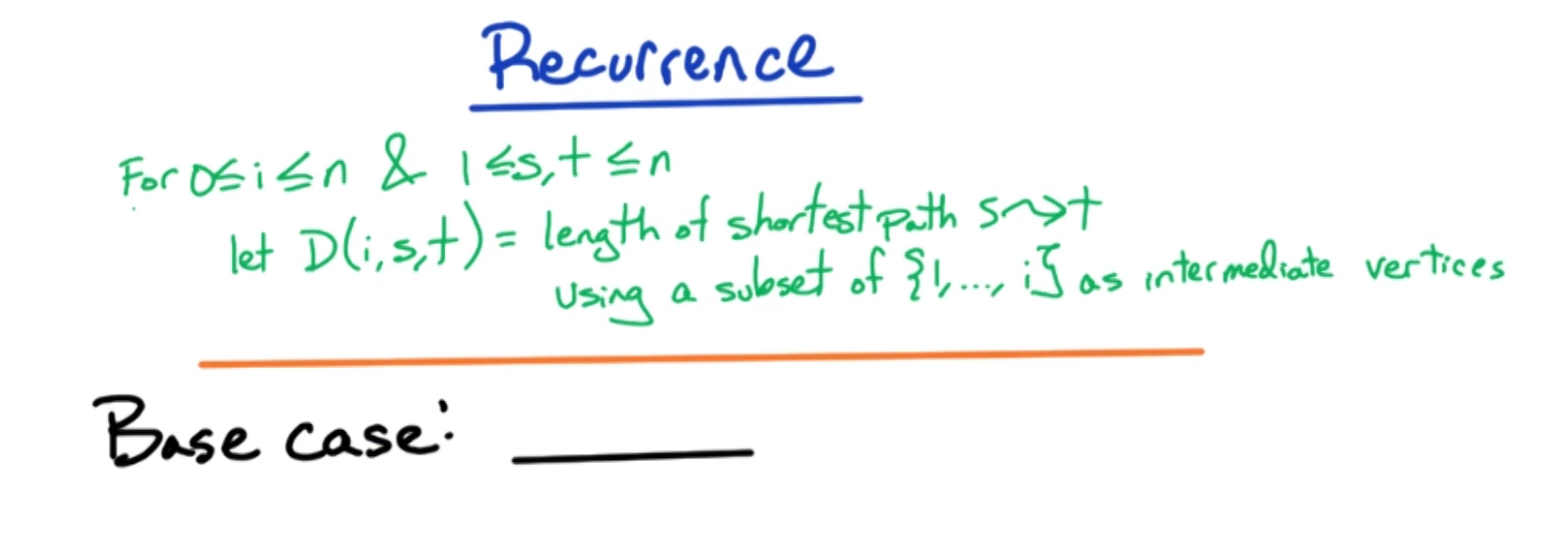 Recurrence
For 0≤i≤n & 1≤s,t≤n
let D(i,s,t) = length of shortest path s⤳t
using a subset of {1,...,i} as intermediate vertices
Base case: ________